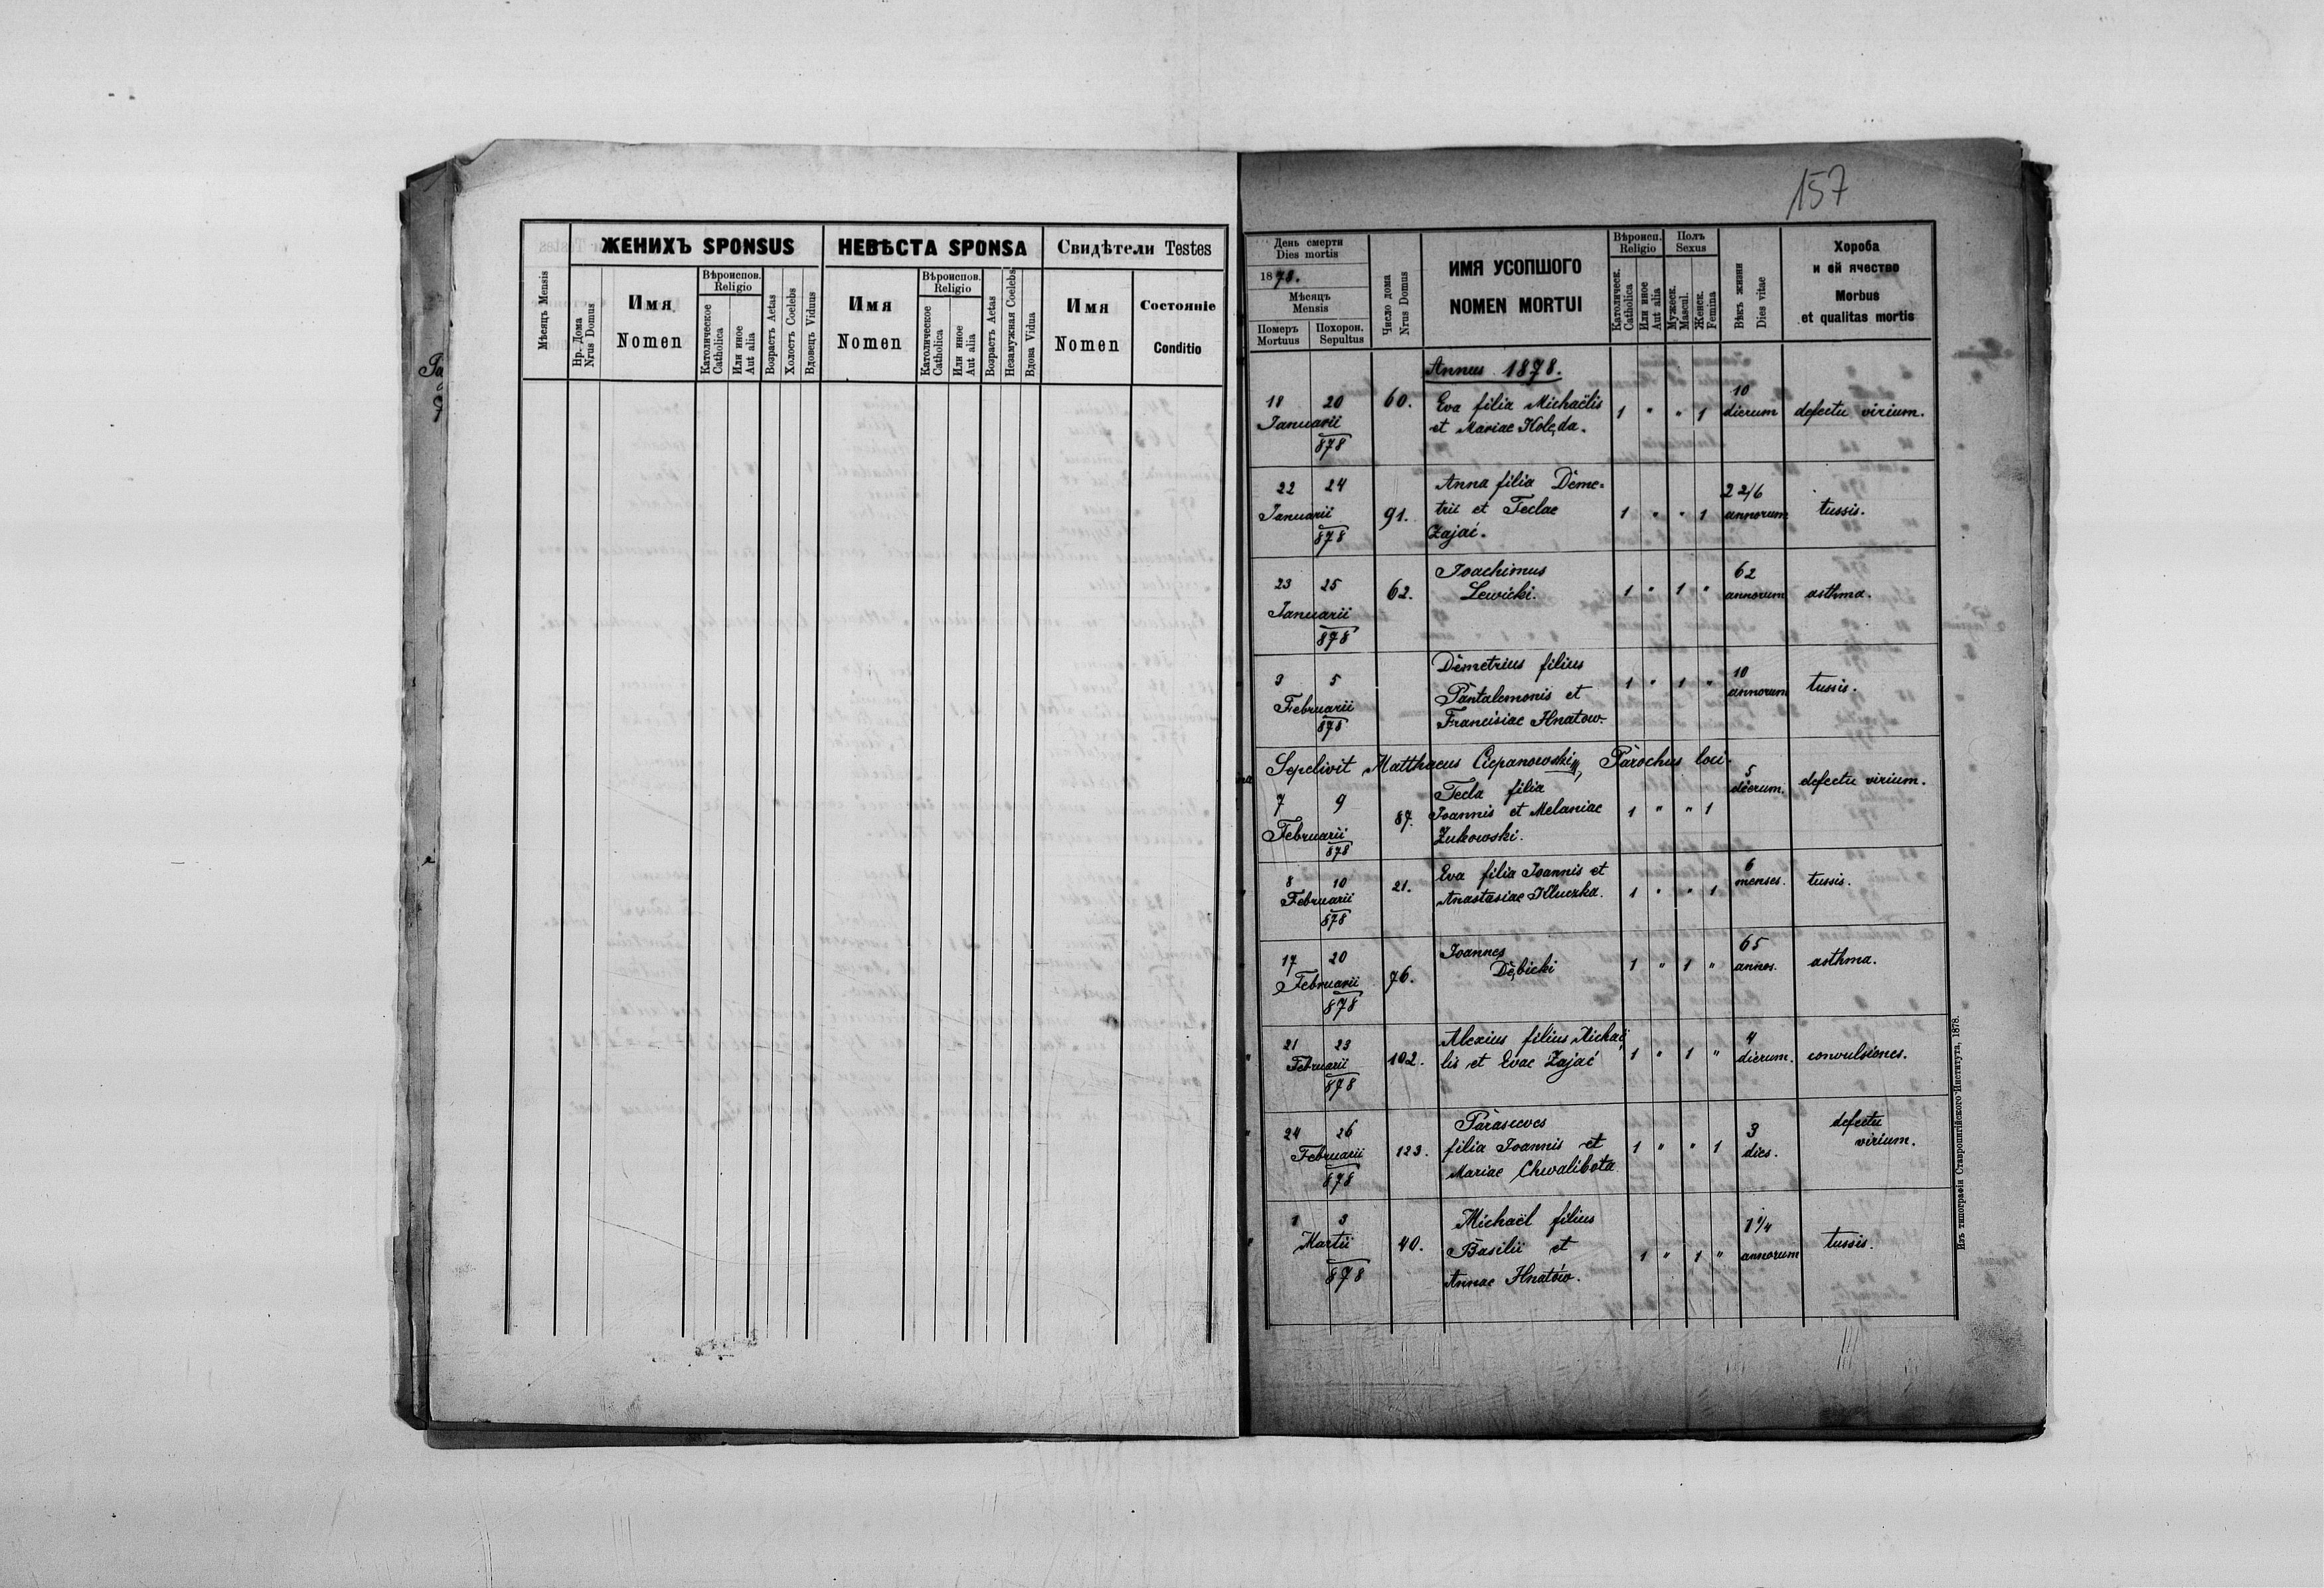 157
ЖЕНИХЪ SPONSUS
НЕВѢСТА SPONSA
Свидѣтели Testes
Мѣсяцъ Mensis
Нр. Дома
Nrus Domus
Имя
Nomen
Вѣроиспов.
Religio
Католическое
Catholica
Или иное
Aut alia
Возрастъ Aetas
Холостъ Coelebs
Вдовецъ Viduus
Имя
Nomen
Вѣроиспов.
Religio
Католическое
Catholica
Или иное
Aut alia
Возрастъ Aetas
Незамужная Coelebs
Вдова Vidua
Имя
Nomen
Состояніе
Conditio
День смерти
Dies mortis
1878.
Мѣсяцъ
Mensis
Померъ
Mortuus
Похорон.
Sepultus
Число дома
Nrus Domus
ИМЯ УСОПШОГО
NOMEN MORTUI
Вѣроисп.
Religio
Католическ.
Catholica
Или иное
Aut alia
Полъ
Sexus
Мужеск.
Mascul.
Женск.
Femina
Вѣкъ жизни
Dies vitae
Хороба
и ей ячество
Morbus
et qualitas mortis
Annus 1878.
18 20 60. Eva filia Michaëlis 1 " " 1 10 dierum defectu virium.
Januarii et Mariae Kolęda.
878
22 24 Anna filia Deme= 2 2/6
Januarii 91. trii et Teclae 1 " " 1 annorum tussis.
878 Zająć.
23 25 62. Joachimus 62
Januarii Lewicki. 1 " 1 " annorum asthma.
878
3 5 Demetrius filius 1 " 1 " 10 annorum tussis.
Februarii Pantalemonis et
878 Francisiae Hnatow.
Sepelivit Matthaeus Ciepanowski, Parochus loci.
7 9 87. Tecla filia 5 dierum. defectu virium.
Februarii Joannis et Melaniae 1 " " 1
878 Zukowski.
8 10 21. Eva filia Joannis et 6 menses. tussis.
Februarii Anastasiae Kluczka. 1 " " 1
878
17 20 76. Joannes 65
Februarii Dębicki 1 " 1 " annos. asthma.
878
21 23 102. Alexius filius Michaë 4
Februarii lis et Evae Zająć 1 " 1 " dierum. convulsiones.
878
24 26 123. Parasceves 3 defectu
Februarii filia Joannis et 1 " " 1 dies. virium.
878 Mariae Chwalibota
1 3 40. Michaël filius 1 1/4
Martii Basilii et 1 " 1 " annorum tussis.
878 Annae Hnatów.
Изъ типографіи Ставропигійского Института, 1878.